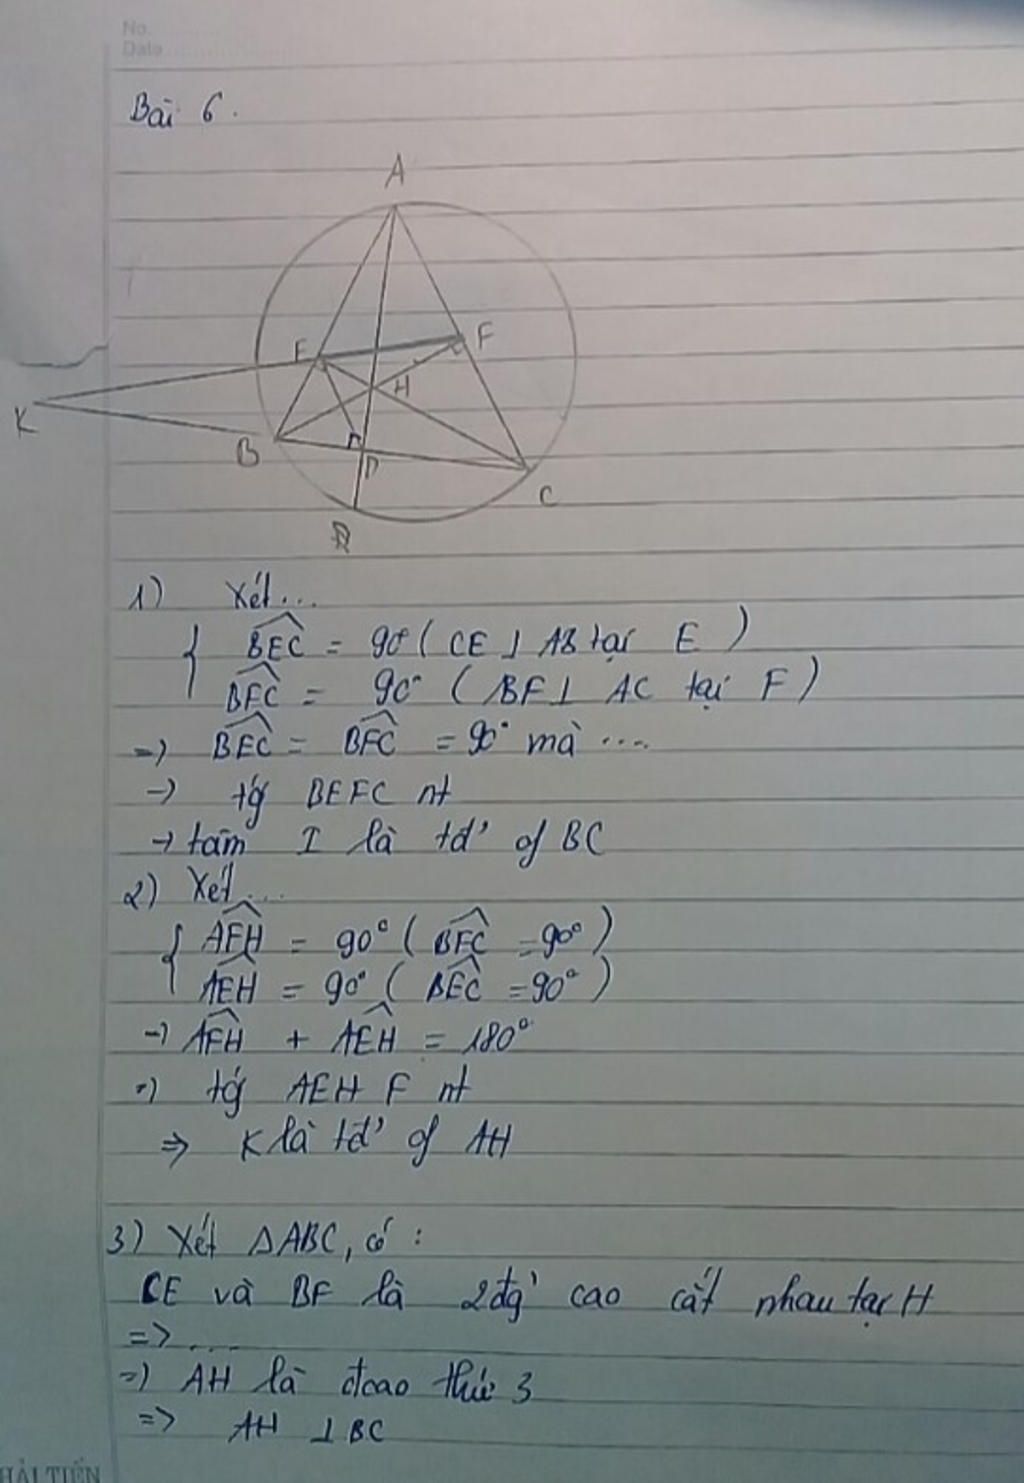 No.
Date
Bài 6.
A
E
F
K
H
B
D
C
1) Xét...
{ BEC = 90° ( CE ⊥ AB tại E )
BFC = 90° ( BF ⊥ AC tại F )
=) BEC = BFC = 90° mà ....
-) tứg BEFC nt
→ tâm I là tđ' of BC
2) Xét...
{ AFH = 90° ( BFC = 90° )
AEH = 90° ( BEC = 90° )
-) AFH + AEH = 180°
=) tứg AEH F nt
=> K là tđ' of AH
3) Xét ΔABC, có :
CE và BF là 2 đg' cao cắt nhau tại H
=> ....
=) AH là đcao thứ 3
=> AH ⊥ BC
HẢI TIẾN